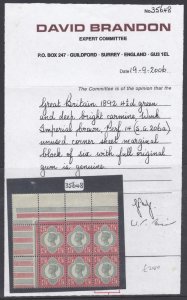 No. 35648
DAVID BRANDON
EXPERT COMMITTEE
P.O. BOX 247 - GUILDFORD - SURREY - ENGLAND - GU3 1EL
Date 19-9-2006
The Committee is of the opinion that the
Great Britain 1892 4½d green
and deep bright carmine, wmk
Imperial Crown, Perf 14 (S.G. 206a)
unused corner sheet marginal
block of six with full original
gum is genuine
35648